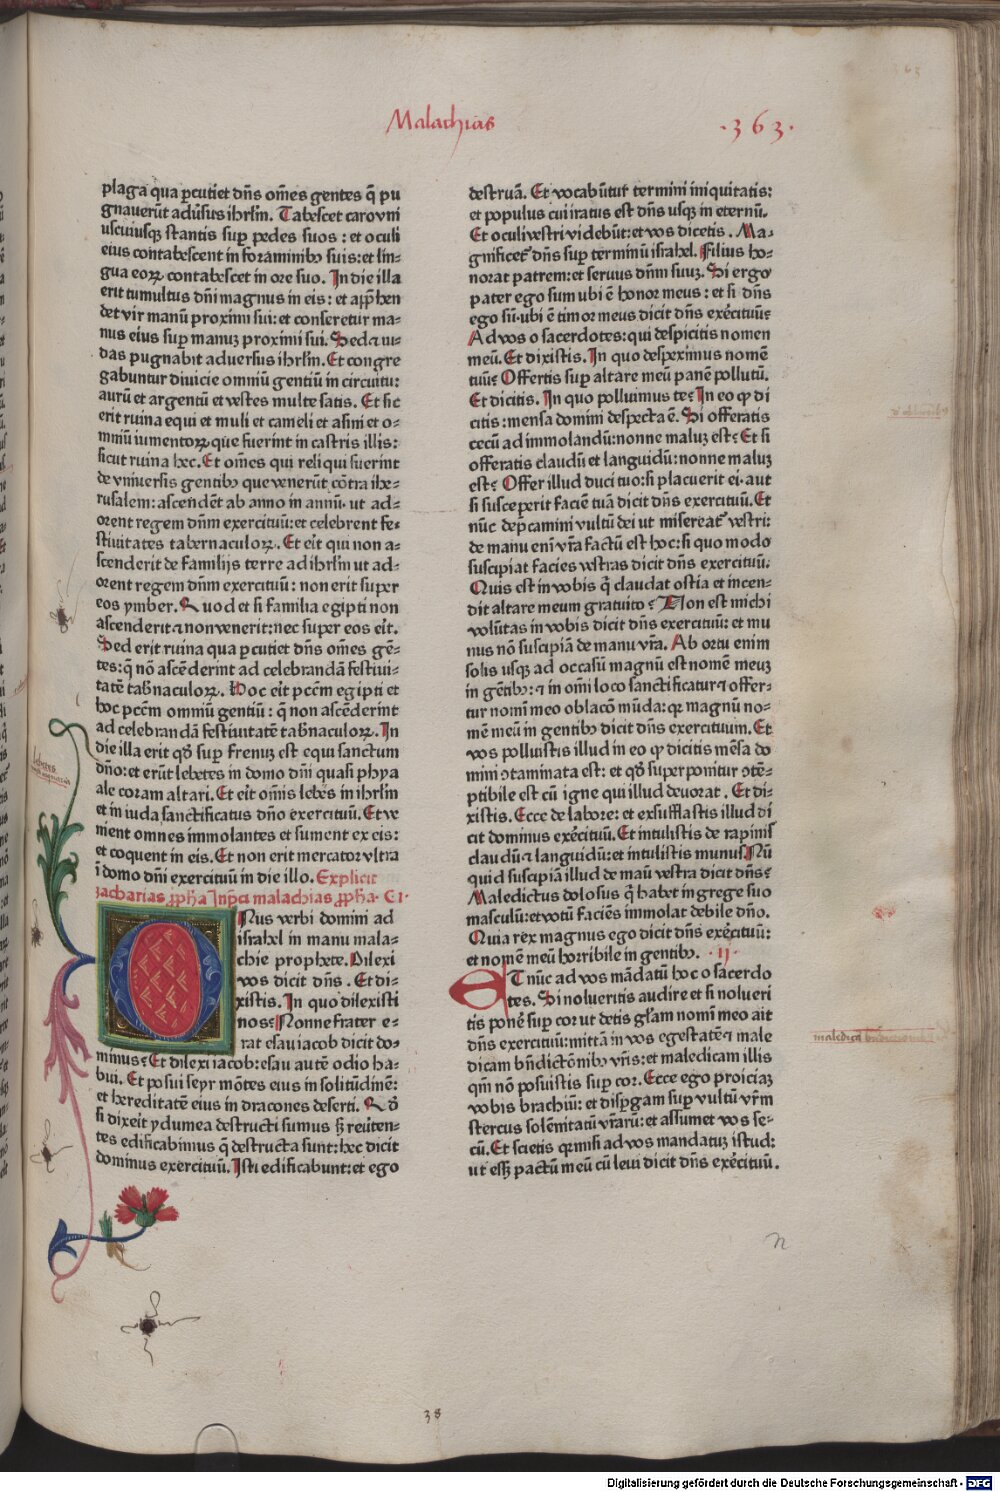 Malachias
·363·
plaga qua ꝑcutiet dn̄s om̄es gentes q̄ pu
gnauerūt adūsus ihrlm̄. Tabescet caro vni
uscuiusqꝫ stantis suꝑ pedes suos : et oculi
eius contabescent in foraminibꝰ suis: et lin-
gua eoꝝ contabescet in ore suo. In die illa
erit tumultus dn̄i magnus in eis: et app̄hen
det vir manū proximi sui: et conseretur ma-
nus eius suꝑ manuꝫ proximi sui. Sed ⁊ iu-
das pugnabit adversus ihrlm̄. Et congre
gabuntur divicie omniū gentiū in circuitu:
aurū et argentū et vestes multe satis. Et sic
erit ruina equi et muli et cameli et asini et o-
mniū iumentoꝝ que fuerint in castris illis:
sicut ruina hec. Et om̄es qui reliqui fuerint
de vniuersis gentibꝰ que venerūt cōtra ihe-
rusalem: ascendēt ab anno in annū· ut ad-
orent regem dn̄m exercituū: et celebrent fe-
stiuitates tabernaculoꝝ. Et eit qui non a-
scenderit de familijs terre ad ihrlm̄ ut ad-
orent regem dn̄m exercituū: non erit super
eos ymber. Quod et si familia egipti non
ascenderit ⁊ non venerit: nec super eos eit.
Sed erit ruina qua ꝑcutiet dn̄s om̄es gē-
tes: q̄ nō ascēderint ad celebrandā festiui-
tatē tabn̄aculoꝝ. Hoc eit pcc̄m egipti et
hoc pcc̄m omniū gentiū : q̄ non ascēderint
ad celebrandā festiuitatē tabn̄aculoꝝ. In
die illa erit qd̄ suꝑ frenuꝫ est equi sanctum
dn̄o: et erūt lebetes in domo dn̄i quasi phya
ale coram altari. Et eit om̄is lebes in ihrlm̄
et in iuda sanctificatus dn̄o exercituū. Et ve
nient omnes immolantes et sument ex eis:
et coquent in eis. Et non erit mercator vltra
ī domo dn̄i exercituū in die illo. Explicit
zacharias ꝓph̄a Inp̄cit malachias ꝓph̄a· C I·
ONus verbi domini ad
israhel in manu mala-
chie prophete. Dilexi
vos dicit dn̄s . Et di-
xistis. In quo dilexisti
nos? Nonne frater e-
rat esau iacob dicit do-
minus? Et dilexi iacob: esau autē odio ha-
bui. Et posui seyr mōtes eius in solitudinē:
et hereditatē eius in dracones deserti. Qd̄
si dixeit ydumea destructi sumus sꝫ reūten-
tes edificabimus q̄ destructa sunt: hec dicit
dominus exercituū. Isti edificabunt: et ego
destruā. Et vocabūtur termini iniquitatis:
et populus cui iratus est dn̄s usqꝫ in eternū.
Et oculi vestri videbūt: et vos dicetis . Ma-
gnificet dn̄s suꝑ terminū israhel. Filius ho-
norat patrem: et seruus dn̄m suuꝫ. Si ergo
pater ego sum ubi ē honor meus : et si dn̄s
ego sū· ubi ē timor meus dicit dn̄s exercituū?
Ad vos o sacerdotes: qui despicitis nomen
meū. Et dixistis. In quo despeximus nomē
tuū? Offertis suꝑ altare meū panē pollutū.
Et dicitis. In quo polluimus te? In eo ꝙ di
citis: mensa domini despecta ē. Si offeratis
cecū ad immolandū: nonne maluꝫ est? Et si
offeratis claudū et languidū: nonne maluꝫ
est? Offer illud duci tuo: si placuerit ei· aut
si susceperit faciē tuā dicit dn̄s exercituū. Et
nūc dep̄camini vultū dei ut misereat vestri:
de manu enī vr̄a factū est hoc: si quo modo
suscipiat facies vestras dicit dn̄s exercituū.
Quis est in vobis q̄ claudat ostia et incen-
dit altare meum gratuito ? Non est michi
volūtas in vobis dicit dn̄s exercituū: et mu
nus nō suscipiā de manu vr̄a. Ab ortu enim
solis usqꝫ ad occasū magnū est nomē meuꝫ
in gētibꝰ: ⁊ in om̄i loco sanctificatur ⁊ offer-
tur nomī meo oblacō mūda: qꝛ magnū no-
mē meū in gentibꝰ dicit dn̄s exercituum. Et
vos polluistis illud in eo ꝙ dicitis mēsa do
mini ↄtaminata est: et qd̄ superponitur ↄtē-
ptibile est cū igne qui illud deuorat . Et di-
xistis. Ecce de labore: et exsufflastis illud di
cit dominus exercituū. Et intulistis de rapinis
claudū ⁊ languidū: et intulistis munus. Nū
quid suscipiā illud de maū vestra dicit dn̄s?
Maledictus dolosus q̄ habet in grege suo
masculū: et votū faciēs immolat debile dn̄o.
Quia rex magnus ego dicit dn̄s exercituū:
et nomē meū horribile in gentibꝰ. ·II·
ET nūc ad vos mādatū hoc o sacerdo
tes. Si nolueritis audire et si nolueri
tis ponē suꝑ cor ut detis gl̄am nomī meo ait
dn̄s exercituū: mittā in vos egestatē ⁊ male
dicam bn̄dictōnibꝰ vr̄is: et maledicam illis
qm̄ nō posuistis suꝑ cor. Ecce ego proiciaꝫ
vobis brachiū: et disꝑgam suꝑ vultū vr̄m
stercus solēnitatū vr̄arū: et assumet vos se-
cū. Et scietis qꝛ misi ad vos mandatuꝫ istud:
ut essꝫ pactū meū cū leui dicit dn̄s exercituū.
n
38
Digitalisierung gefördert durch die Deutsche Forschungsgemeinschaft - DFG